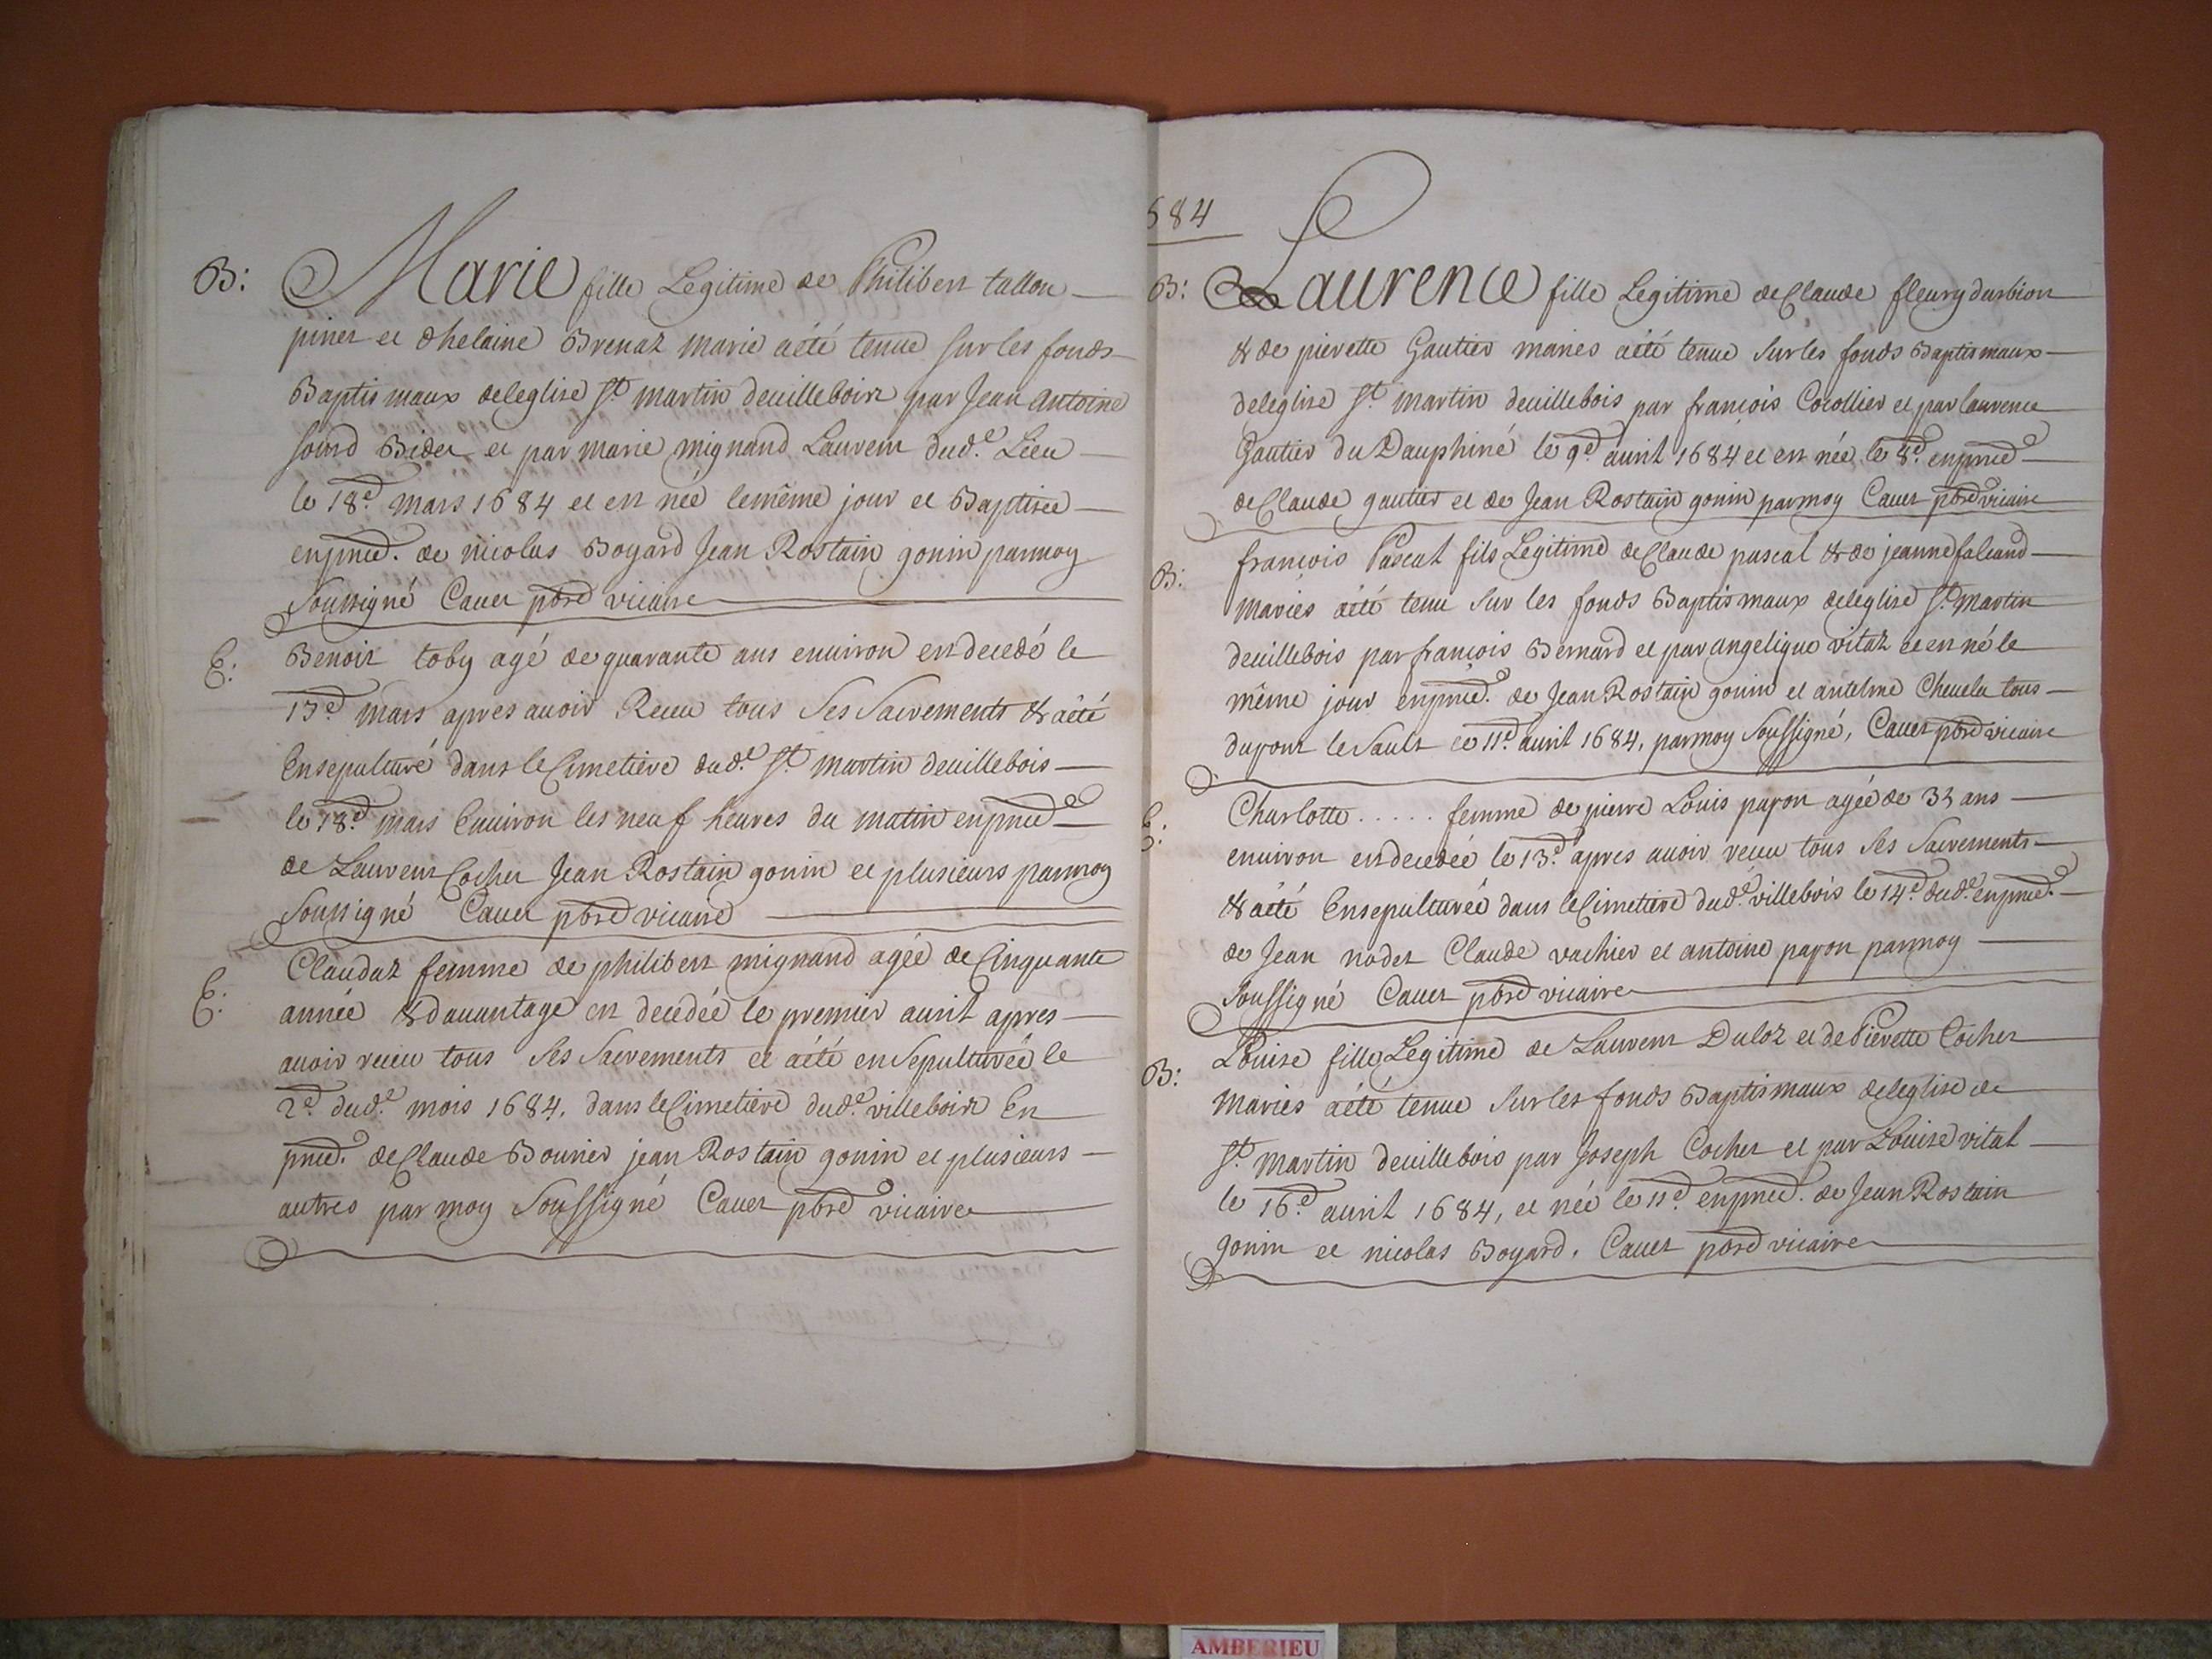 B: Marie fille Legitime de Philibert tallon
pinet et dhelaine Brenaz marié aété tenue sur les fonds
Baptismaux deleglise St. martin deuilleboiz par Jean Antoine
soird Bidet et par marie mignand Laurent dud.e Lieu
le 18.d mars 1684 et est née lemême jour et Baptisée
enpnce. de nicolas Bogard Jean Rostain gonin parmoy
soussigné Cauet pbre vicaire
E: Benoit toby agé de quarante ans enuiron est decedé le
17.d mars apres auoir Receu tous ses sacrements & aété
Ensepulturé dans le Cimetiere dud.e St. martin deuillebois
le 18.d mars Enuiron les neuf heures du matin enpnce
de Laurent Cochet Jean Rostain gonin et plusieurs parmoy
soussigné Cauet pbre vicaire
E: Claudaz femme de philibert mignand agée de Cinquante
année & dauantage est decedée le premier auril apres
auoir receu tous ses sacrements et aété ensepulturée le
2.d dud.e mois 1684. dans le Cimetiere dud.e villeboiz En
pnce. de Claude Bounier jean Rostain gonin et plusieurs
autres par moy soussigné Cauet pbre vicaire
684
B: Laurence fille Legitime de Claude fleury durbion
& de pierrette Gautier mariés aété tenue sur les fonds Baptismaux
deleglise St. martin deuillebois par francois Corollier et par laurence
Gautier du Dauphiné le 9.d auril 1684 et est née le 8.d enpnce
de Claude gautier et de Jean Rostain gonin parmoy Cauet pbre vicaire
B: francois Pascal fils Legitime de Claude pascal & de jeanne faleand
mariés aété tenu sur les fonds Baptismaux deleglise St. Martin
deuillebois par francois Bernard et par angelique vitaz et est né le
même jour enpnce. de Jean Rostain gonin et antelme Cheuelu tous
dupont le Sault le 11.d auril 1684, parmoy soussigné, Cauet pbre vicaire
E: Charlotte ..... femme de pierre Louis papon agée de 33 ans
enuiron est decedée le 13.d apres auoir receu tous ses sacrements
& aété Ensepulturée dans le Cimetiere dud.e villebois le 14.d dud.e enpnce.
de Jean nodet Claude vachier et antoine papon parmoy
soussigné Cauet pbre vicaire
B: Louise fille Legitime de Laurent Duloz et de Pierrette Cochet
Mariés aété tenue sur les fonds Baptismaux deleglise de
St. martin deuillebois par Joseph Cochet et par Louise vital
le 16.d auril 1684, et née le 11.d enpnce. de Jean Rostain
gonin et nicolas Bogard. Cauet pbre vicaire
AMBERIEU